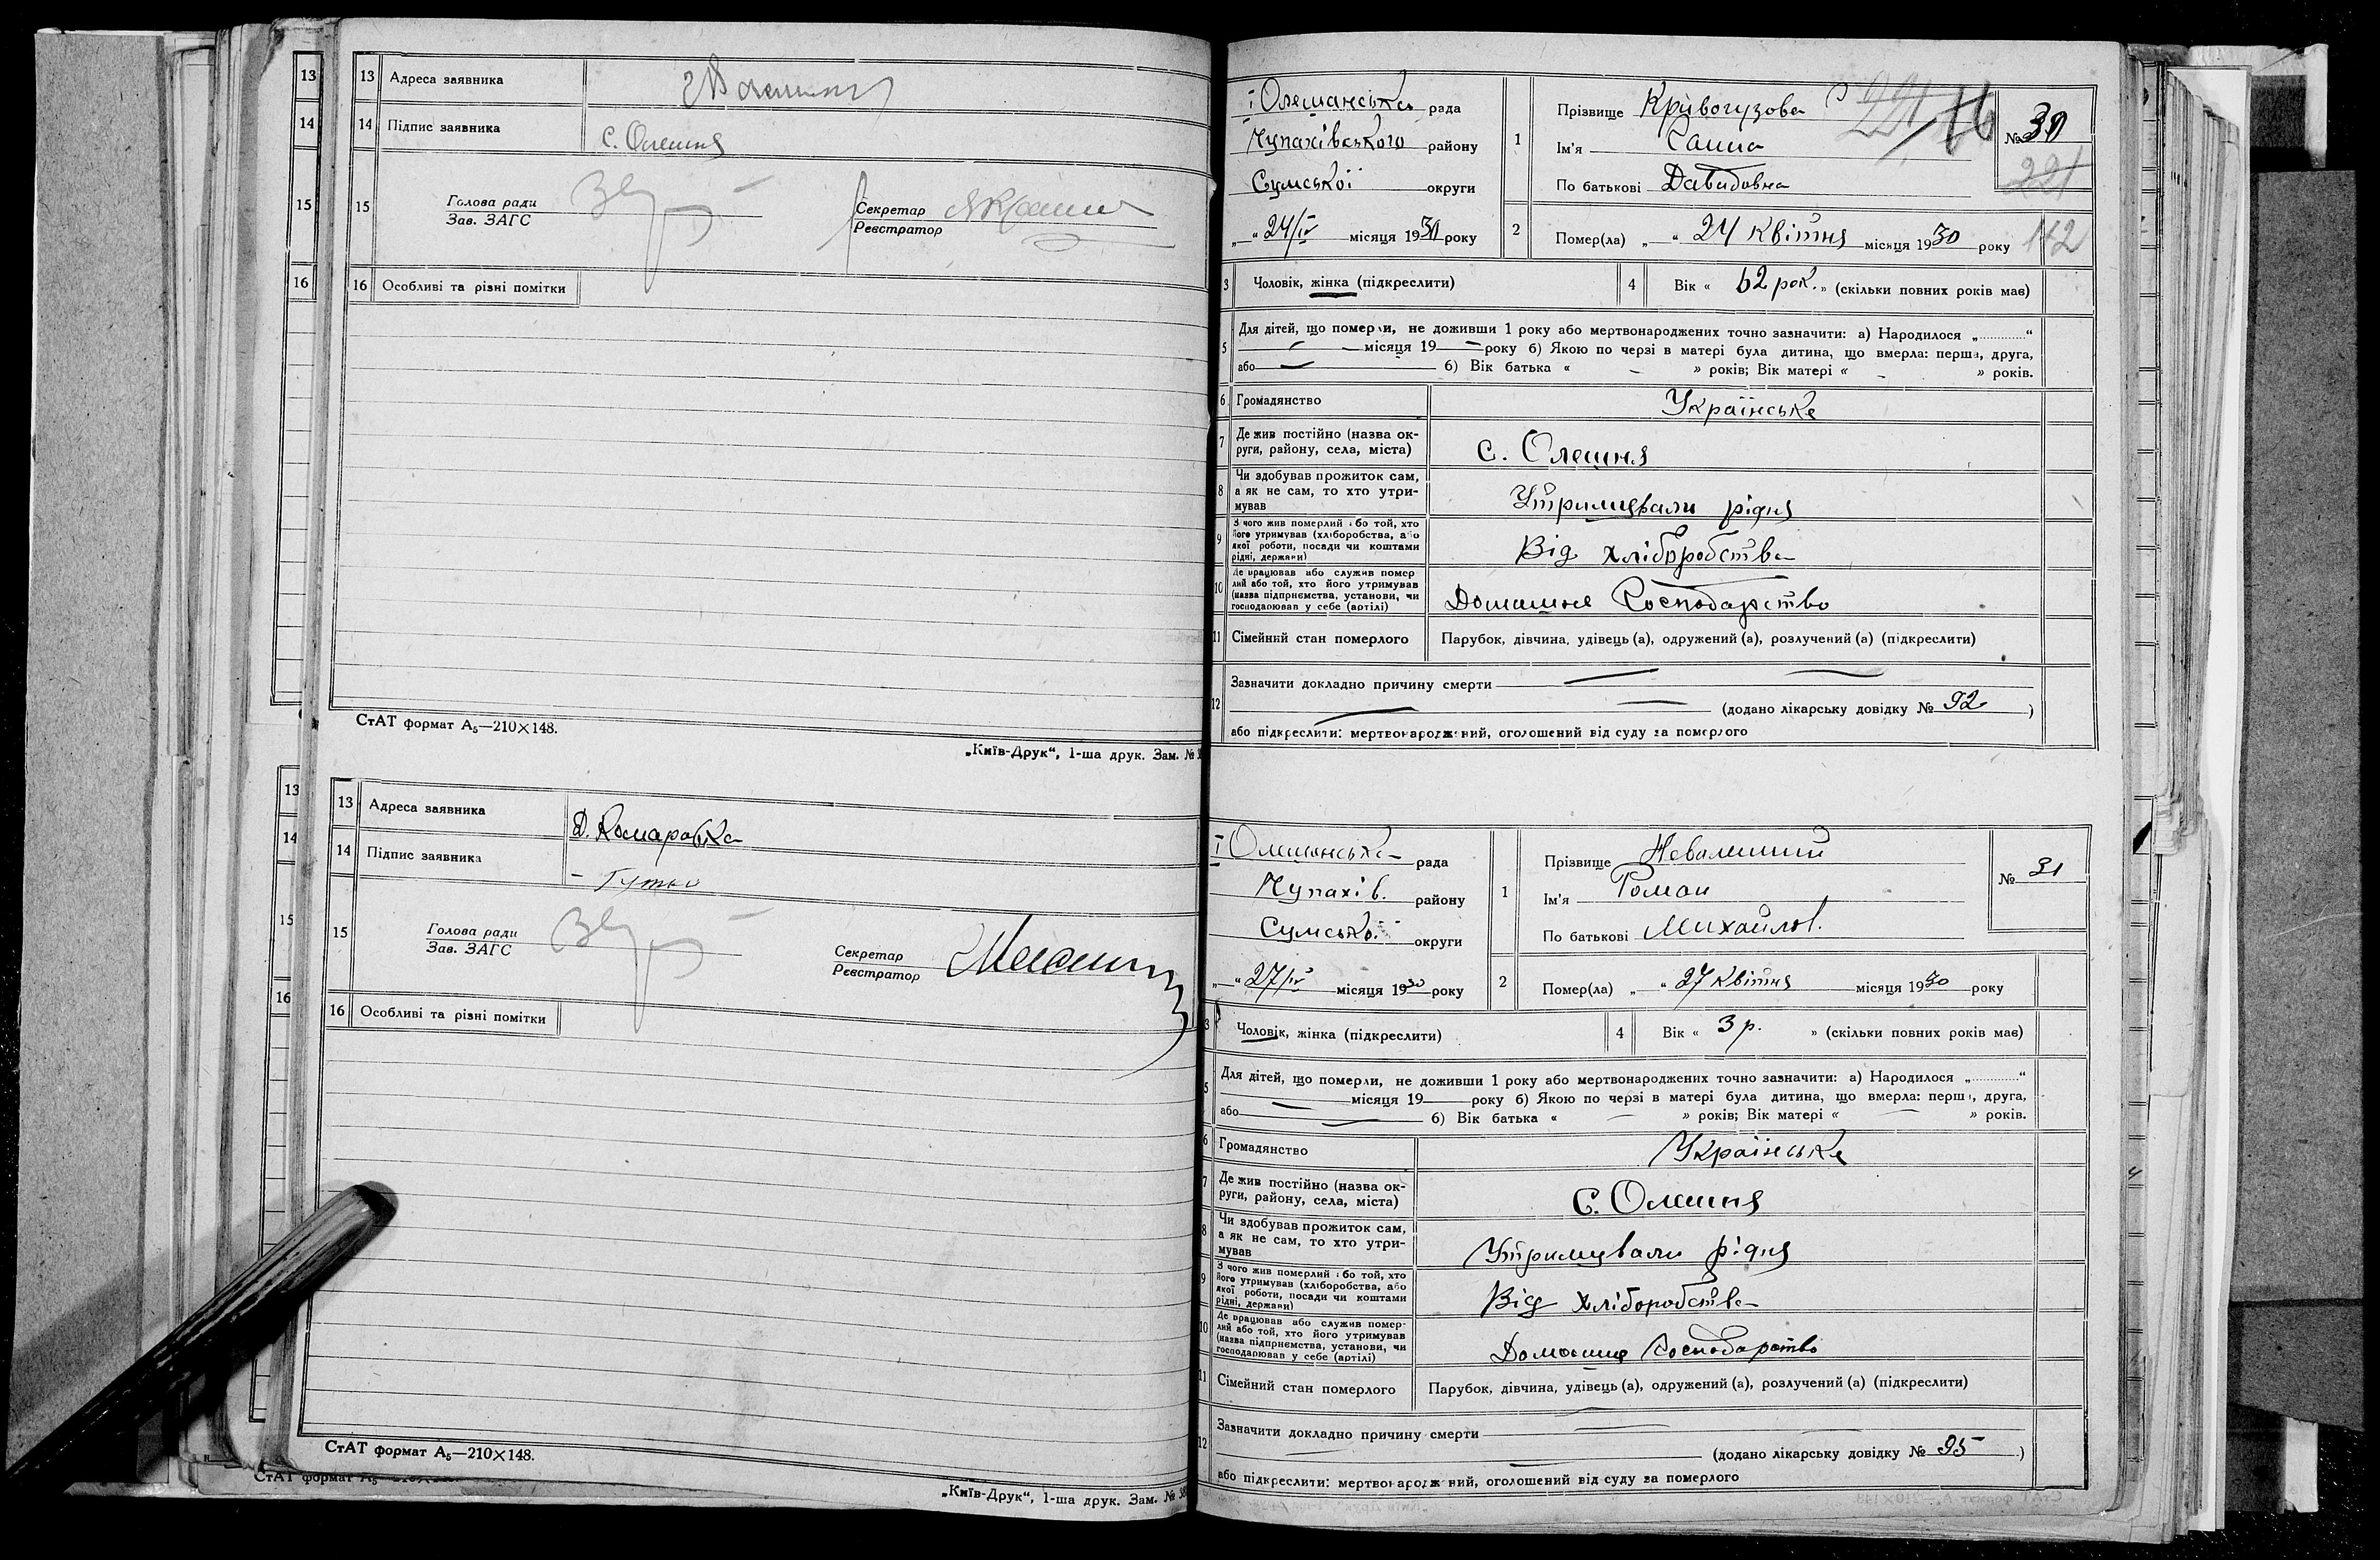 13 Адреса заявника
14 Підпис заявника с. Олешня
15 Голова ради
Зав. ЗАГС
Секретар
Реєстратор
16 Особливі та різні помітки
СтАТ формат А₅—210×148.
„Київ-Друк“, 1-ша друк. Зам. №
13 Адреса заявника Д. Комаровка
14 Підпис заявника
15 Голова ради
Зав. ЗАГС
Секретар
Реєстратор
16 Особливі та різні помітки
СтАТ формат А₅—210×148.
„Київ-Друк“, 1-ша друк. Зам. №
І Олешанська рада
Чупахівського району
Сумської округи
„—“ 24/IV місяця 1930 року
1 Прізвище Кривогузова
Ім'я Ганна
По батькові Давидовна
№ 30
221
112
2 Помер(ла) „—“ 24 Квітня місяця 1930 року
3 Чоловік, жінка (підкреслити)
4 Вік « 62 рок. » (скільки повних років має)
5 Для дітей, що померли, не доживши 1 року або мертвонароджених точно зазначити: а) Народилося „.............“
— місяця 19— року б) Якою по черзі в матері була дитина, що вмерла: перша, друга,
або — б) Вік батька « — » років; Вік матері « — » років.
6 Громадянство Українське
7 Де жив постійно (назва ок-
руги, району, села, міста) с. Олешня
8 Чи здобував прожиток сам,
а як не сам, то хто утри-
мував Утримували рідня
9 З чого жив померлий або той, хто
його утримував (хліборобства, або
якої роботи, посади чи коштами
рідні, держави) Від хліборобства
10 Де працював або служив помер
лий або той, хто його утримував
(назва підприємства, установи, чи
господарював у себе (артілі) Домашнє Господарство
11 Сімейний стан померлого Парубок, дівчина, удівець (а), одружений (а), розлучений (а) (підкреслити)
12 Зазначити докладно причину смерти — —
— — (додано лікарську довідку № 92 )
або підкреслити: мертвонароджений, оголошений від суду за померлого
І Олешанська рада
Чупахів. району
Сумської округи
„—“ 27/IV місяця 1930 року
1 Прізвище
Ім'я Роман
По батькові Михайлов.
№ 31
2 Помер(ла) „—“ 27 Квітня місяця 1930 року
3 Чоловік, жінка (підкреслити)
4 Вік « 3 р. » (скільки повних років має)
5 Для дітей, що померли, не доживши 1 року або мертвонароджених точно зазначити: а) Народилося „.............“
— місяця 19— року б) Якою по черзі в матері була дитина, що вмерла: перша, друга,
або — б) Вік батька « — » років; Вік матері « — » років.
6 Громадянство Українське
7 Де жив постійно (назва ок-
руги, району, села, міста) С. Олешня
8 Чи здобував прожиток сам,
а як не сам, то хто утри-
мував Утримували рідня
9 З чого жив померлий або той, хто
його утримував (хліборобства, або
якої роботи, посади чи коштами
рідні, держави) Від Хліборобства
10 Де працював або служив помер-
лий або той, хто його утримував
(назва підприємства, установи, чи
господарював у себе (артілі) Домашнє Господарство
11 Сімейний стан померлого Парубок, дівчина, удівець (а), одружений (а), розлучений (а) (підкреслити)
12 Зазначити докладно причину смерти —
— (додано лікарську довідку № 95 )
або підкреслити: мертвонароджений, оголошений від суду за померлого